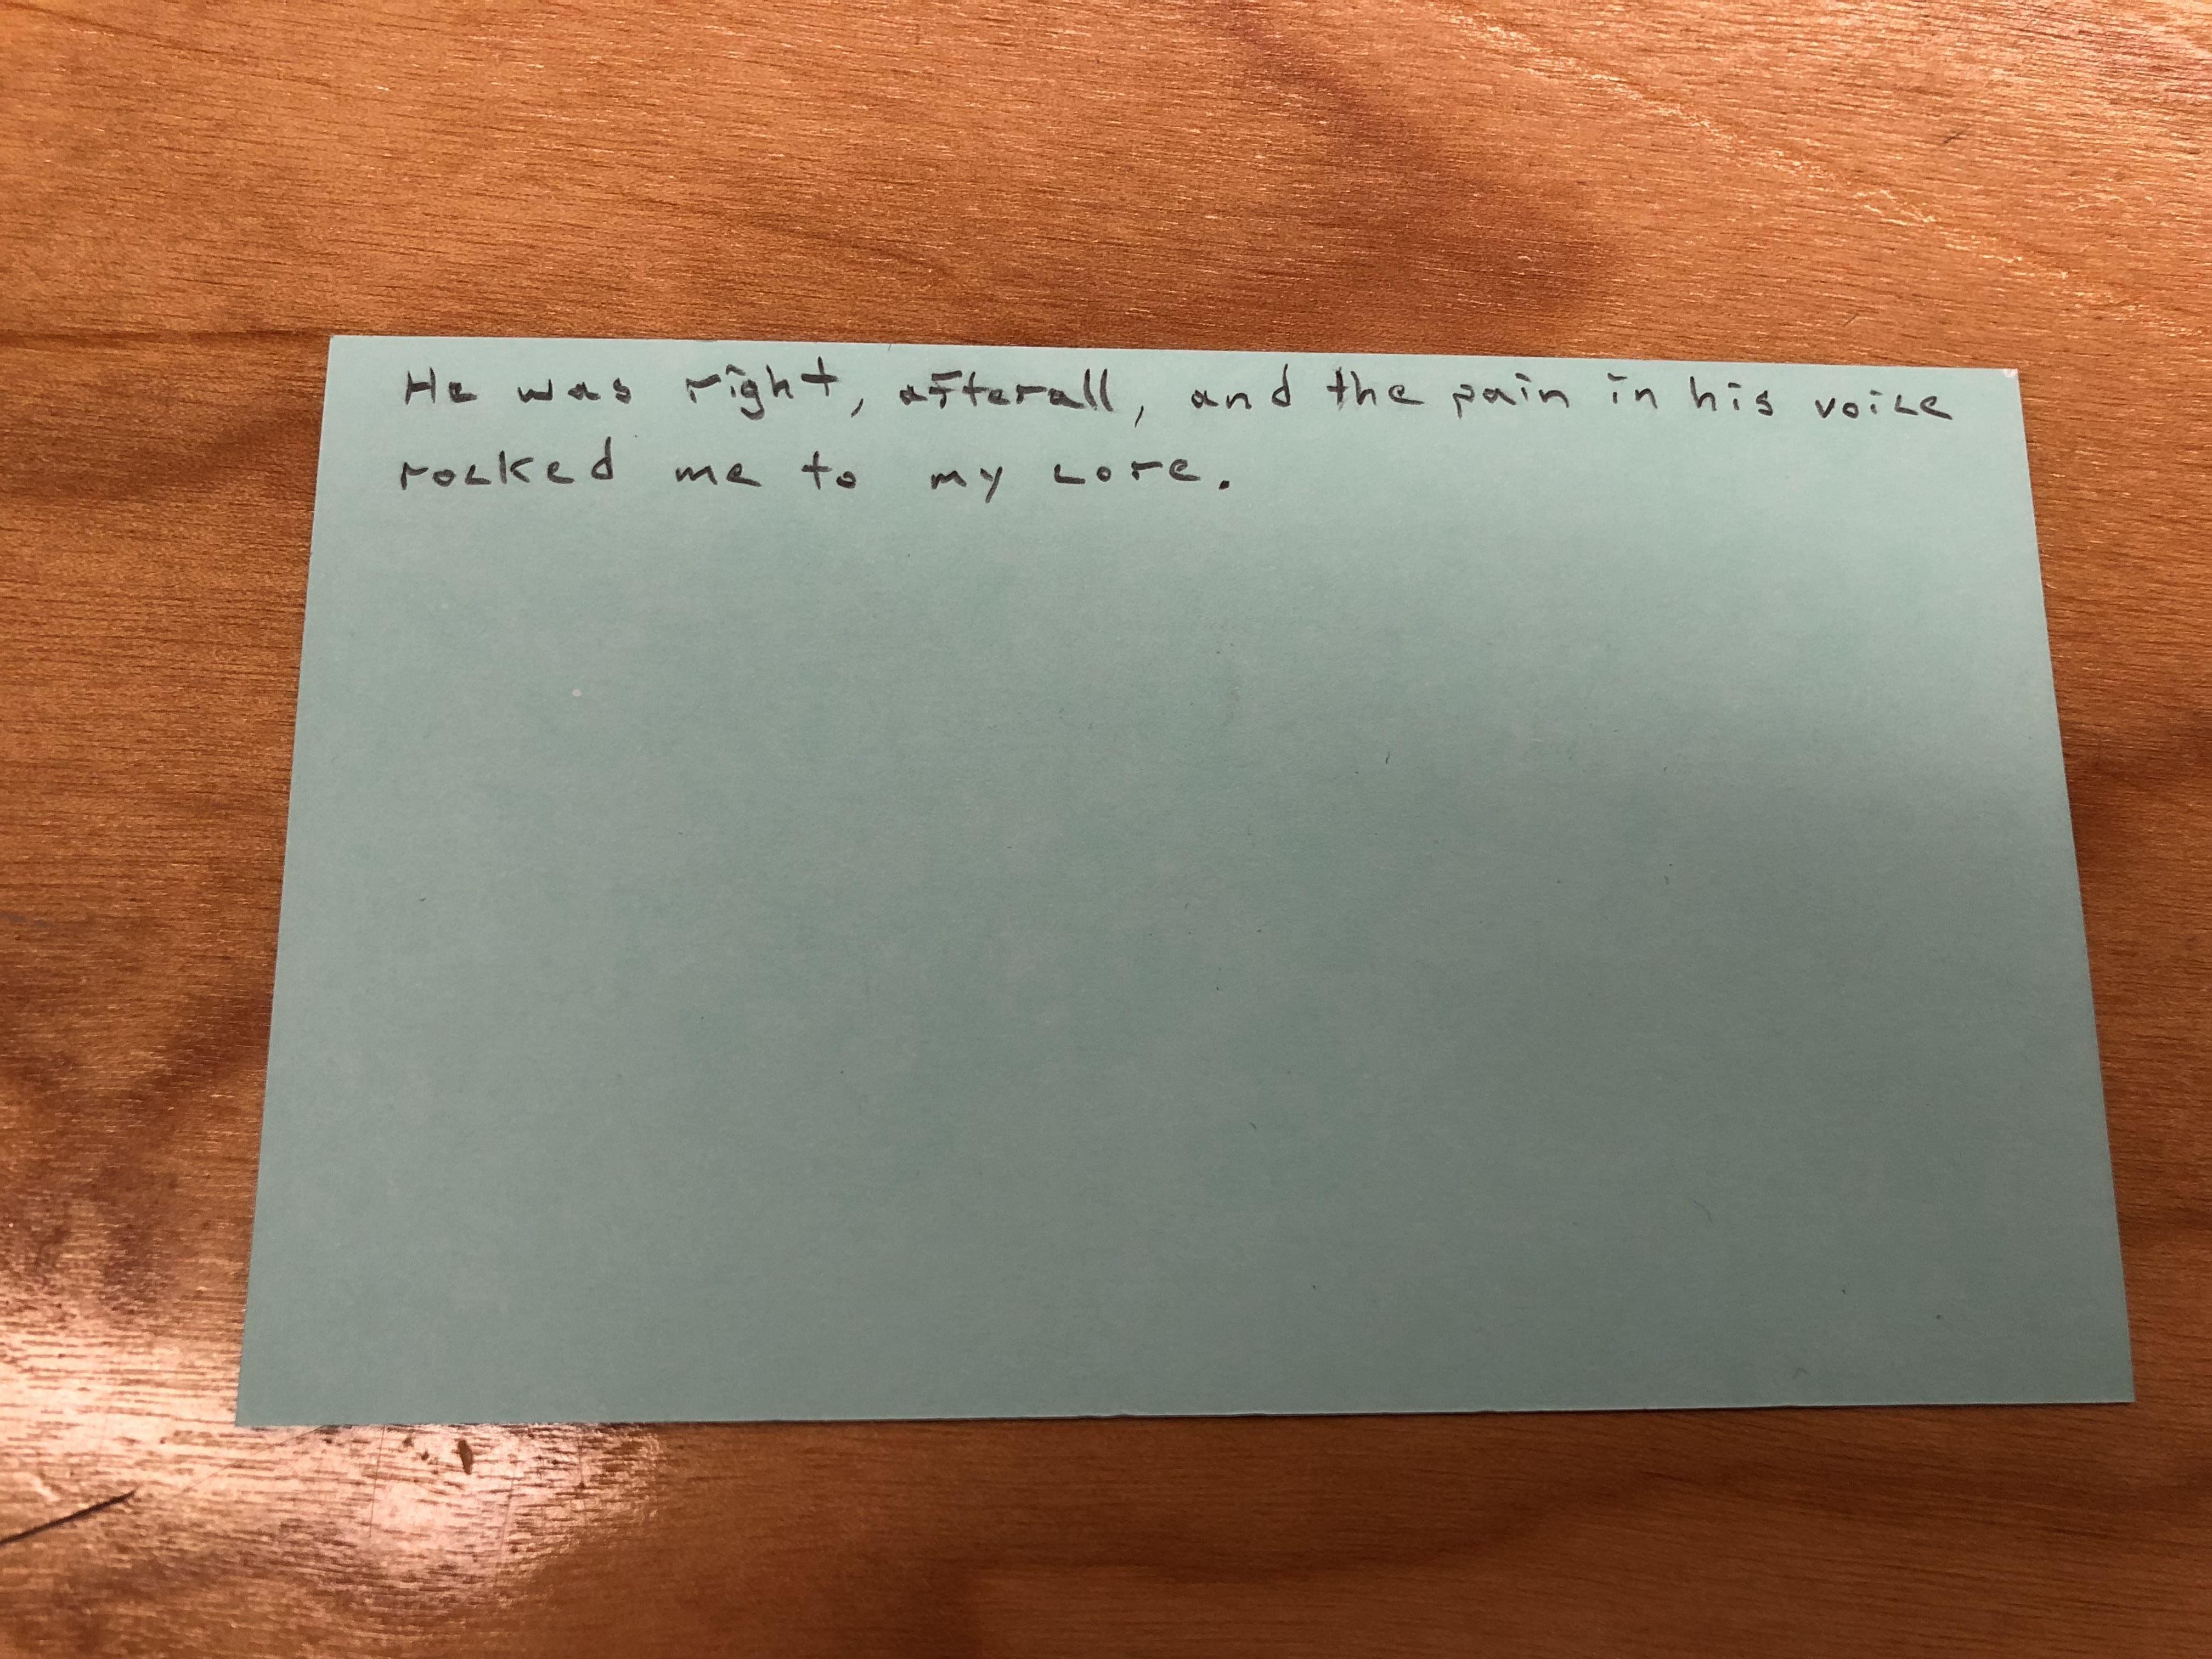 He was right, afterall, and the pain in his voice
rocked me to my core.